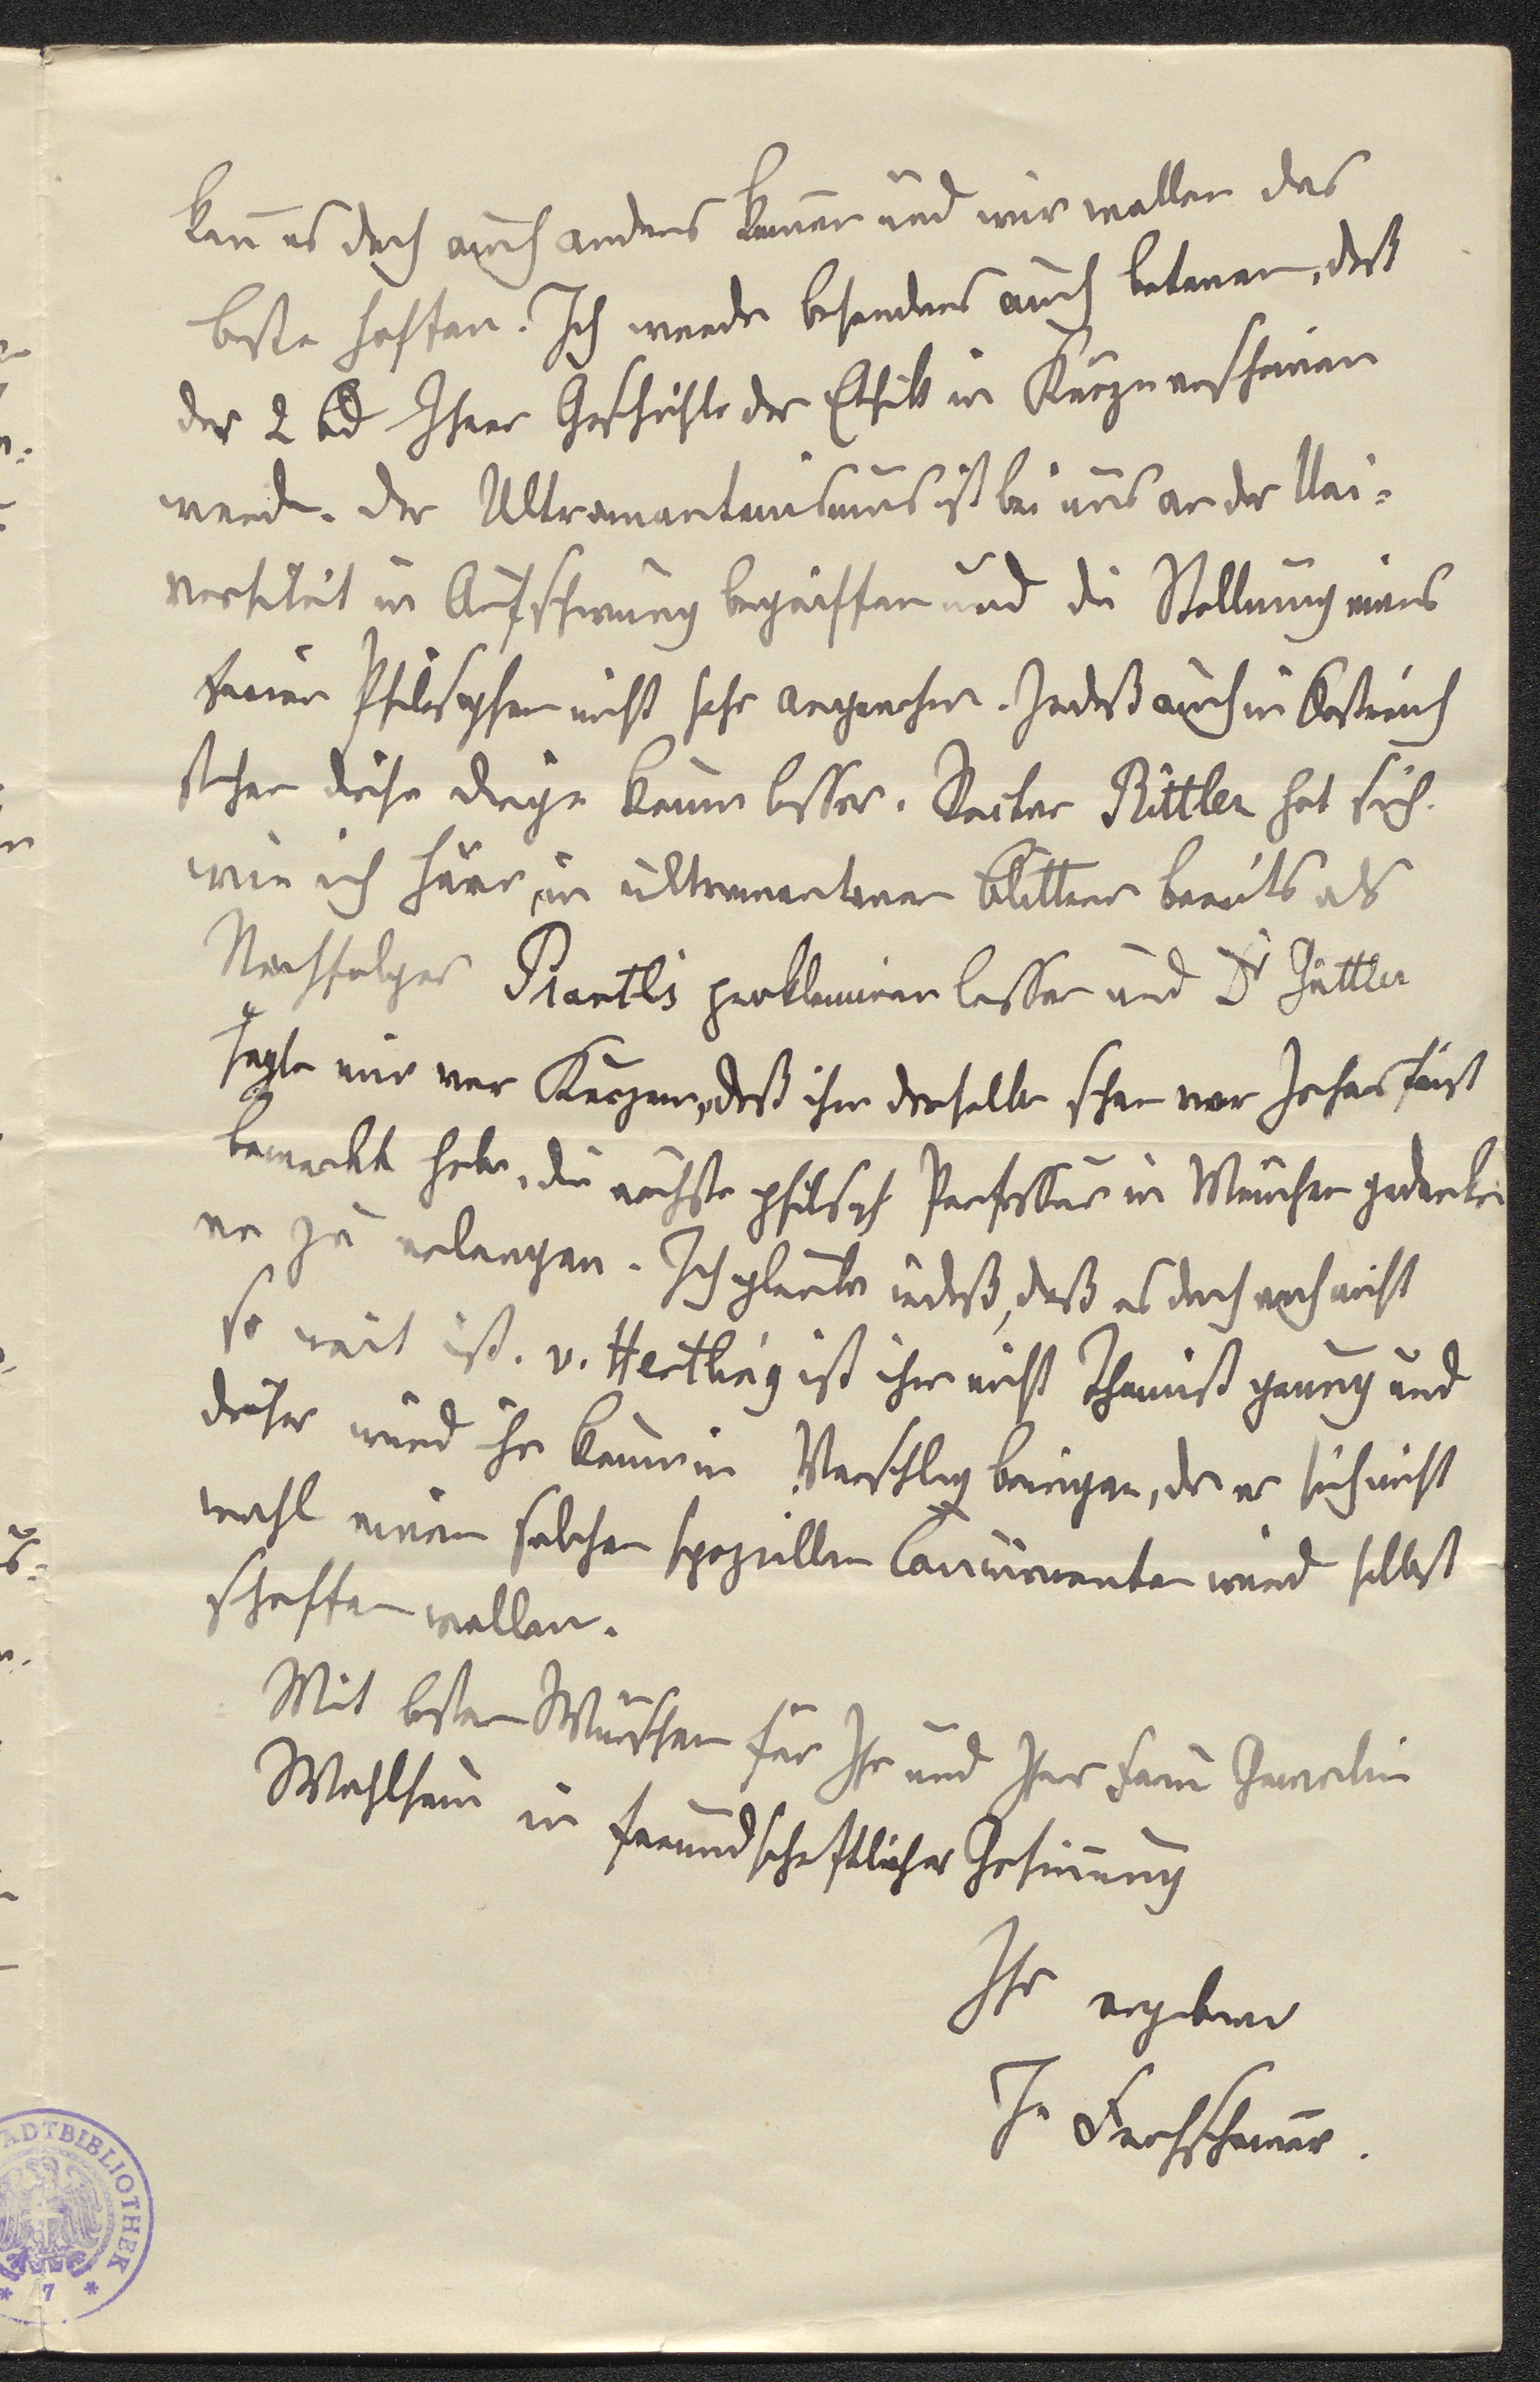 kan̄ es doch auch anders kommen und wir wollen das
beste hoffen. Ich werde besonders auch betonen, daß
der 2 Bd Ihrer Geschichte der Ethik in Kürze erscheinen
werde. Der Ultramontanismus ist bei uns an der Uni-
versität in Aufschwung begriffen und die Stellung eines
freien Philosophen nicht sehr angenehm. Indeß auch in Östreich
stehen diese Dinge kaum besser. Rektor Bittler hat sich
wie ich höre, in ultramontanen Blättern bereits als
Nachfolger Prantls proklamiren lassen und Dr Güttler
sagte mir vor Kurzem, daß ihm derselbe schon vor Jahresfrist
bemerkt habe, die nächste philosoph Professur in München gedenke
er zu erlangen. Ich glaube indeß, daß es doch noch nicht
so weit ist. v. Hertling ist ihm nicht Thomist genug und
dieser wird ihn kaum in Vorschlag bringen, da er sich nicht
wohl einen solchen speziellen Concurrenten wird selbst
schaffen wollen.
Mit besten Wünschen für Ihr und Ihrer Frau Gemahlin
Wohlsein in freundschaftlicher Gesinnung
Ihr ergebener
J. Frohschammer.
ADTBIBLIOTHEK
* 7 *